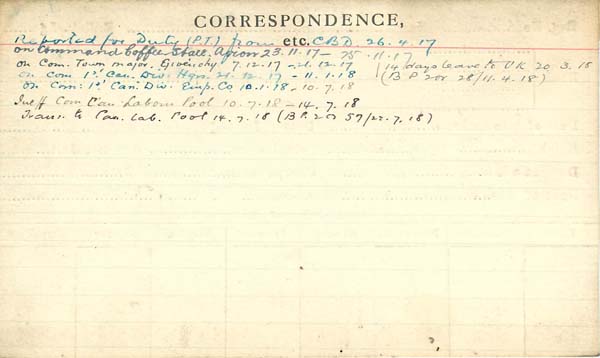 CORRESPONDENCE,
etc.
Reported for Duty (P.T.) from CBD. 26.4.17
on Command Coffee Stall. 23.11.17 - 25.11.17
on Com. Town Major. Givenchy 7.12.17 - 21.12.17
14 days leave to UK 20.3.18
on Com 1st Can. Div. Hqrs. 21.12.17 - 11.1.18
(B P 2or 28/11.4.18)
on Com: 1st Can. Div. Emp. Co 10.1.18 - 10.7.18
Com Can. Labour Pool 10.7.18 - 14.7.18
Trans. to Can. Lab. Pool 14.7.18 (B.P. 2or 57/22.7.18)